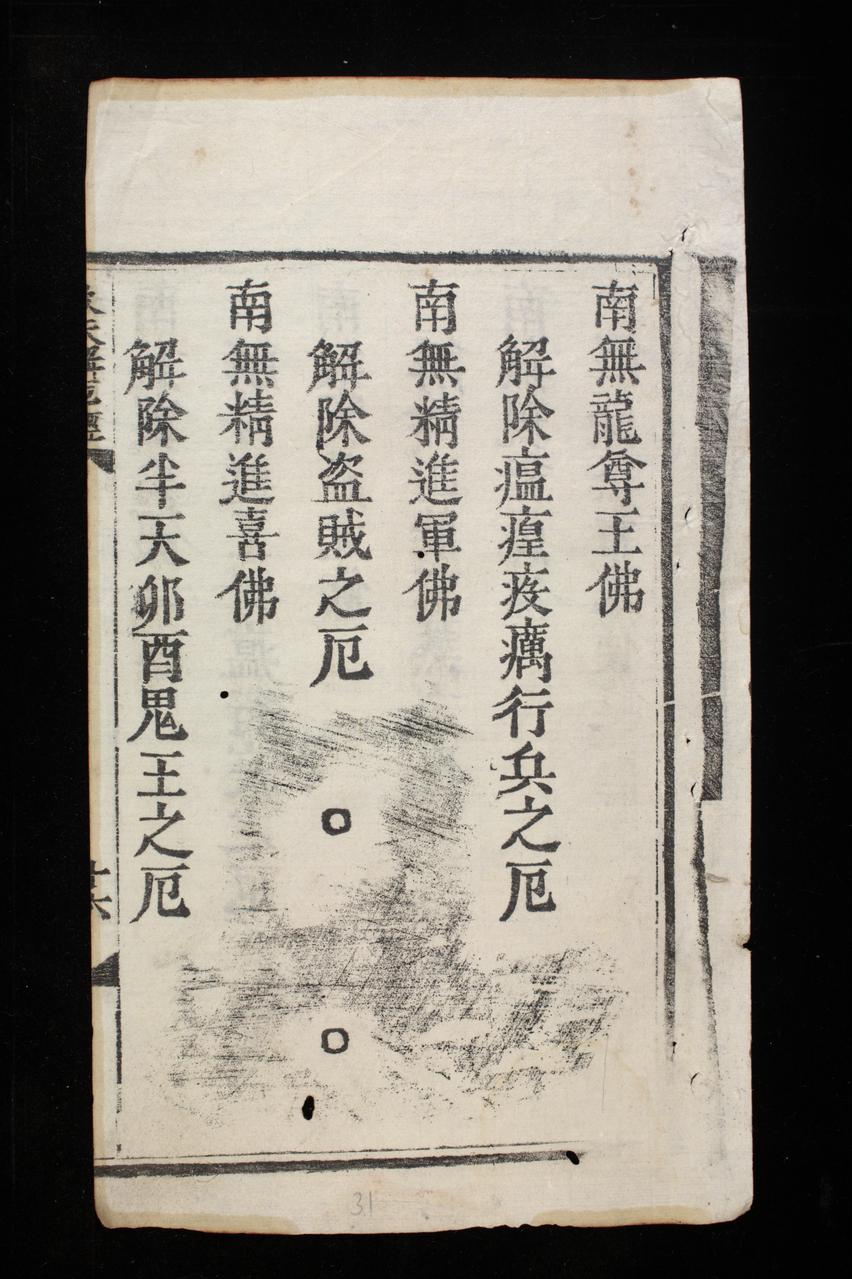 南無龍尊王佛
解除瘟瘟疫癘行兵之厄
南無精進軍佛
解除盗賊之厄
南無精進喜佛
解除半天卯酉鬼王之厄
廿六
31